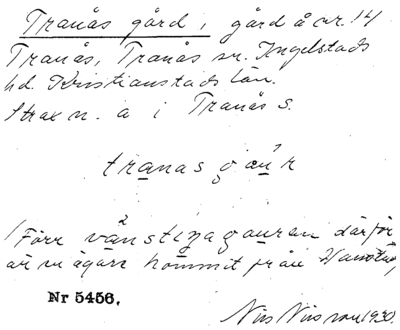 Tranås gård, gård å nr. 14
Tranås, Tranås sn. Ingelstads
hd. Kristianstads län.
Strax n. a i Tranås s.
tranas gaur
(Förr vänstingagauren därför
att ägare kommit från
Nr 5456.
Nils Nilsson 1930.